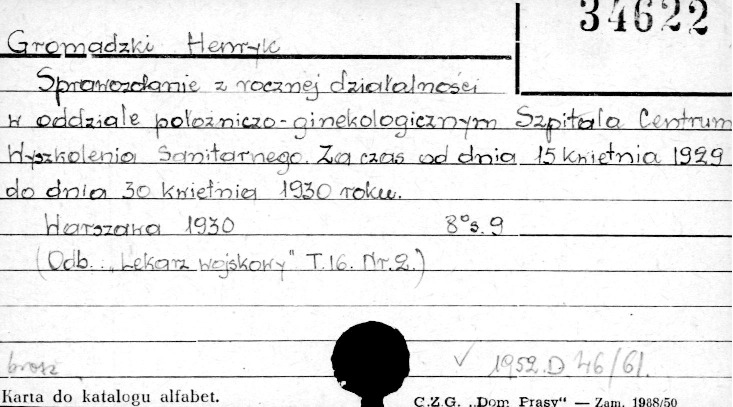 34622
Gromadzki Henryk
Sprawozdanie z rocznej działalności
w oddziale położniczo-ginekologicznym Szpitala Centrum
Wyszkolenia Sanitarnego. Za czas od dnia 15 kwietnia 1929
do dnia 30 kwietnia 1930 roku.
Warszawa 1930 8°s. 9
(Odb. "Lekarz wojskowy" T.16. Nr.2.)
brosz
✓ 1952.D 46/61.
Karta do katalogu alfabet.
C.Z.G. „Dom Prasy“ — Zam. 1988/50